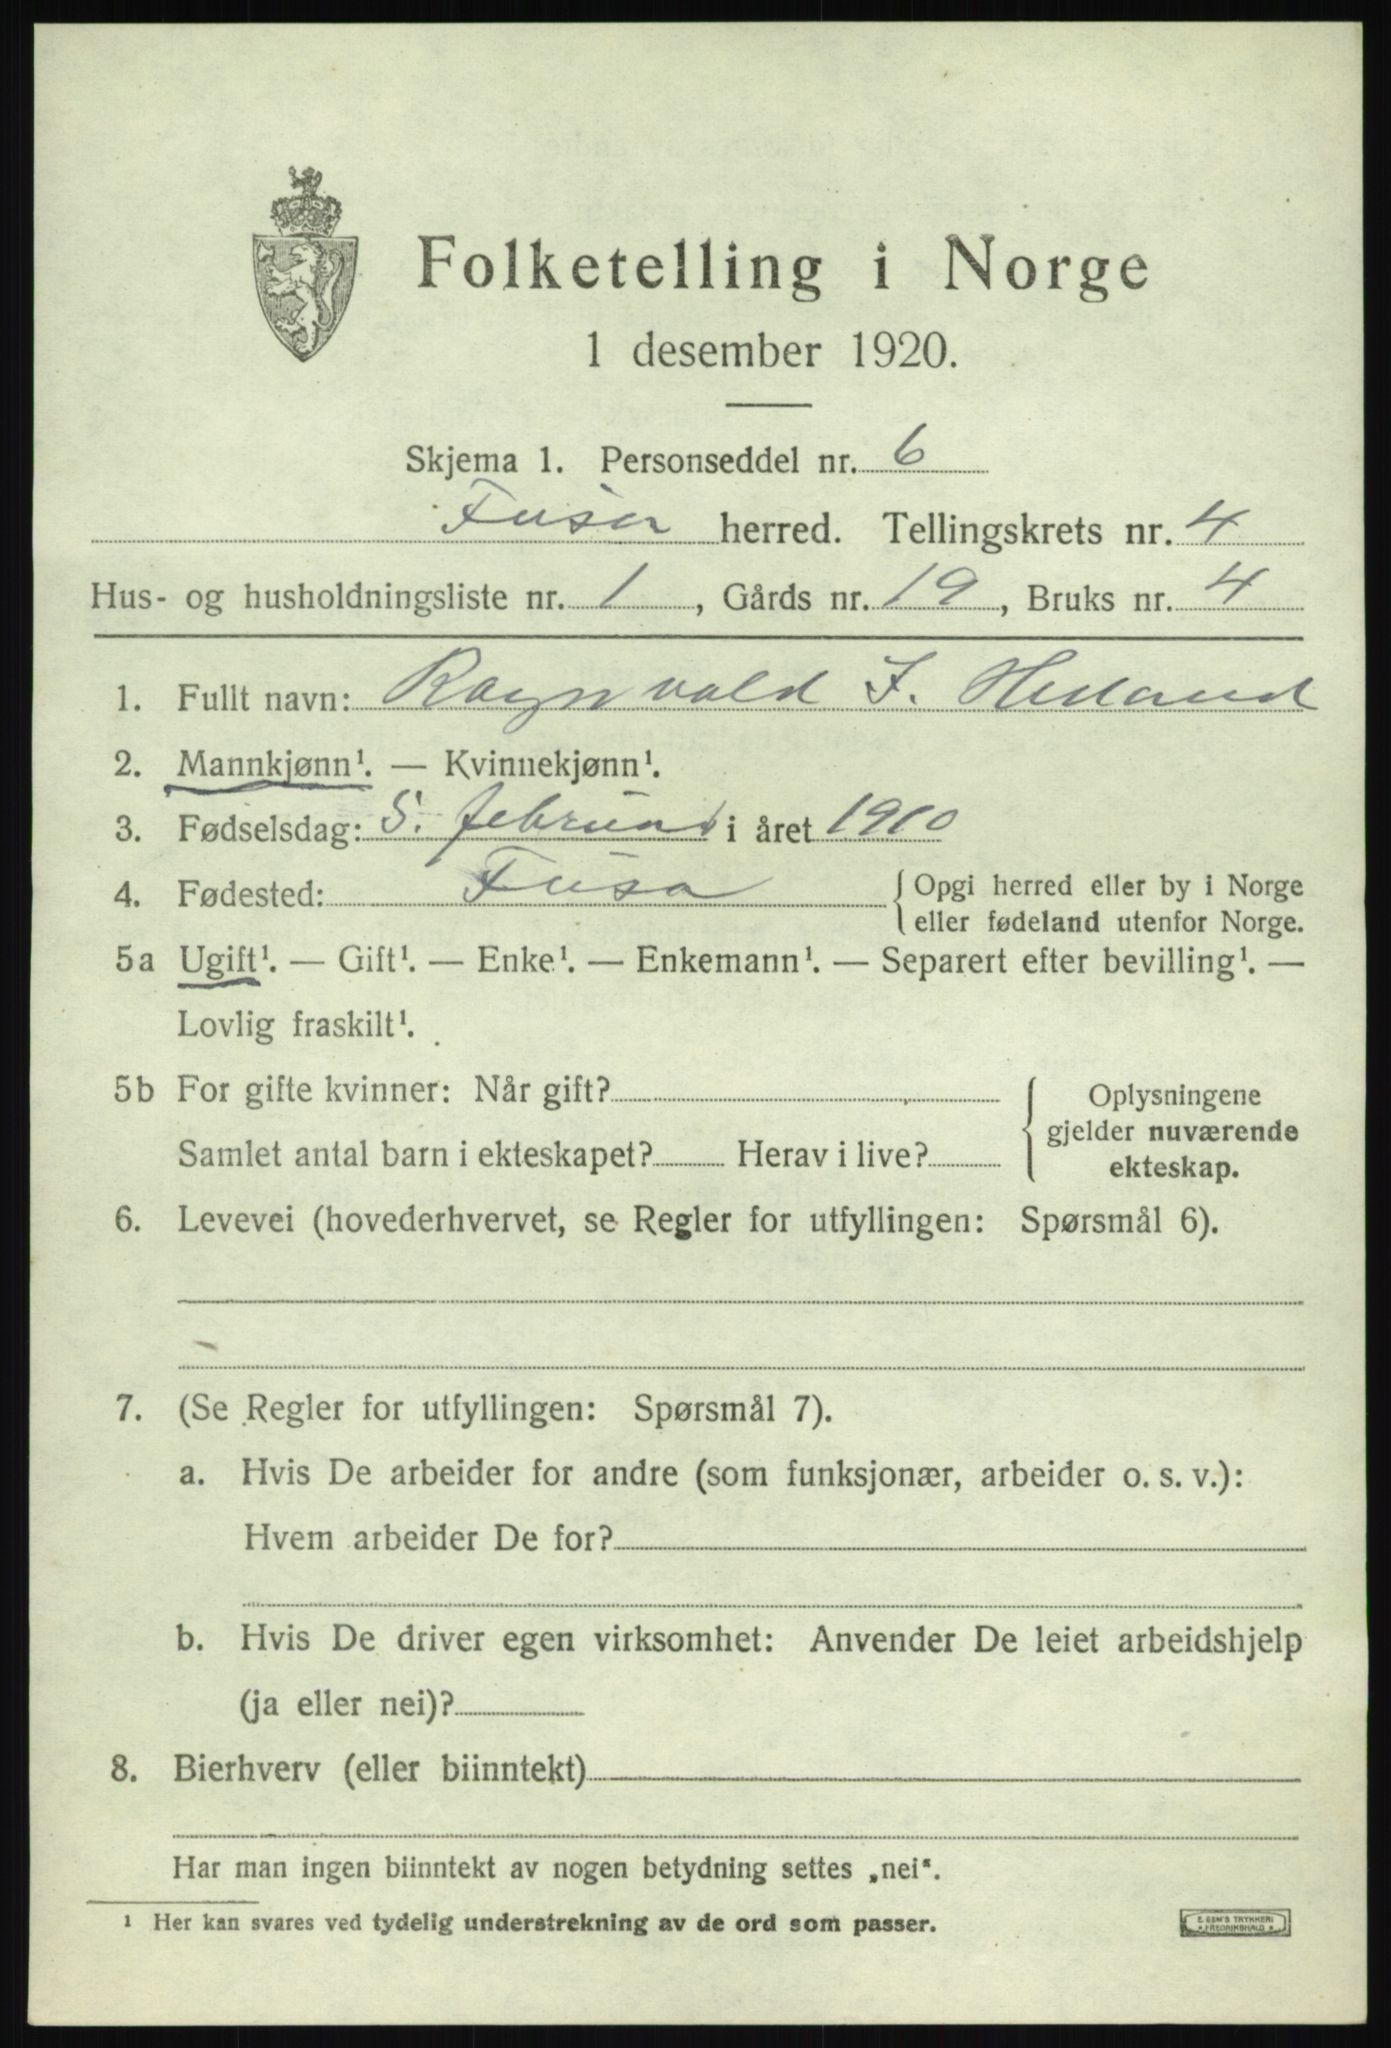 Folketelling i Norge
1 desember 1920.
Skjema 1. Personseddel nr. 6
Fusa herred. Tellingskrets nr. 4
Hus- og husholdningsliste nr. 1, Gårds nr. 19, Bruks nr. 4
1. Fullt navn: Ragnvald J. Helland
2. Mannkjønn¹. — Kvinnekjønn¹.
3. Fødselsdag: 5. februar i året 1910
4. Fødested: Fusa { Opgi herred eller by i Norge
eller fødeland utenfor Norge.
5a Ugift¹. — Gift¹. — Enke¹. — Enkemann¹. — Separert efter bevilling¹. —
Lovlig fraskilt¹.
5b For gifte kvinner: Når gift? { Oplysningene
gjelder nuværende
Samlet antal barn i ekteskapet? Herav i live? ekteskap.
6. Levevei (hovederhvervet, se Regler for utfyllingen: Spørsmål 6).
7. (Se Regler for utfyllingen: Spørsmål 7).
a. Hvis De arbeider for andre (som funksjonær, arbeider o. s. v.):
Hvem arbeider De for?
b. Hvis De driver egen virksomhet: Anvender De leiet arbeidshjelp
(ja eller nei)?
8. Bierhverv (eller biinntekt)
Har man ingen biinntekt av nogen betydning settes „nei“.
¹ Her kan svares ved tydelig understrekning av de ord som passer.
TRYKKERI
FREDRIKSHALD